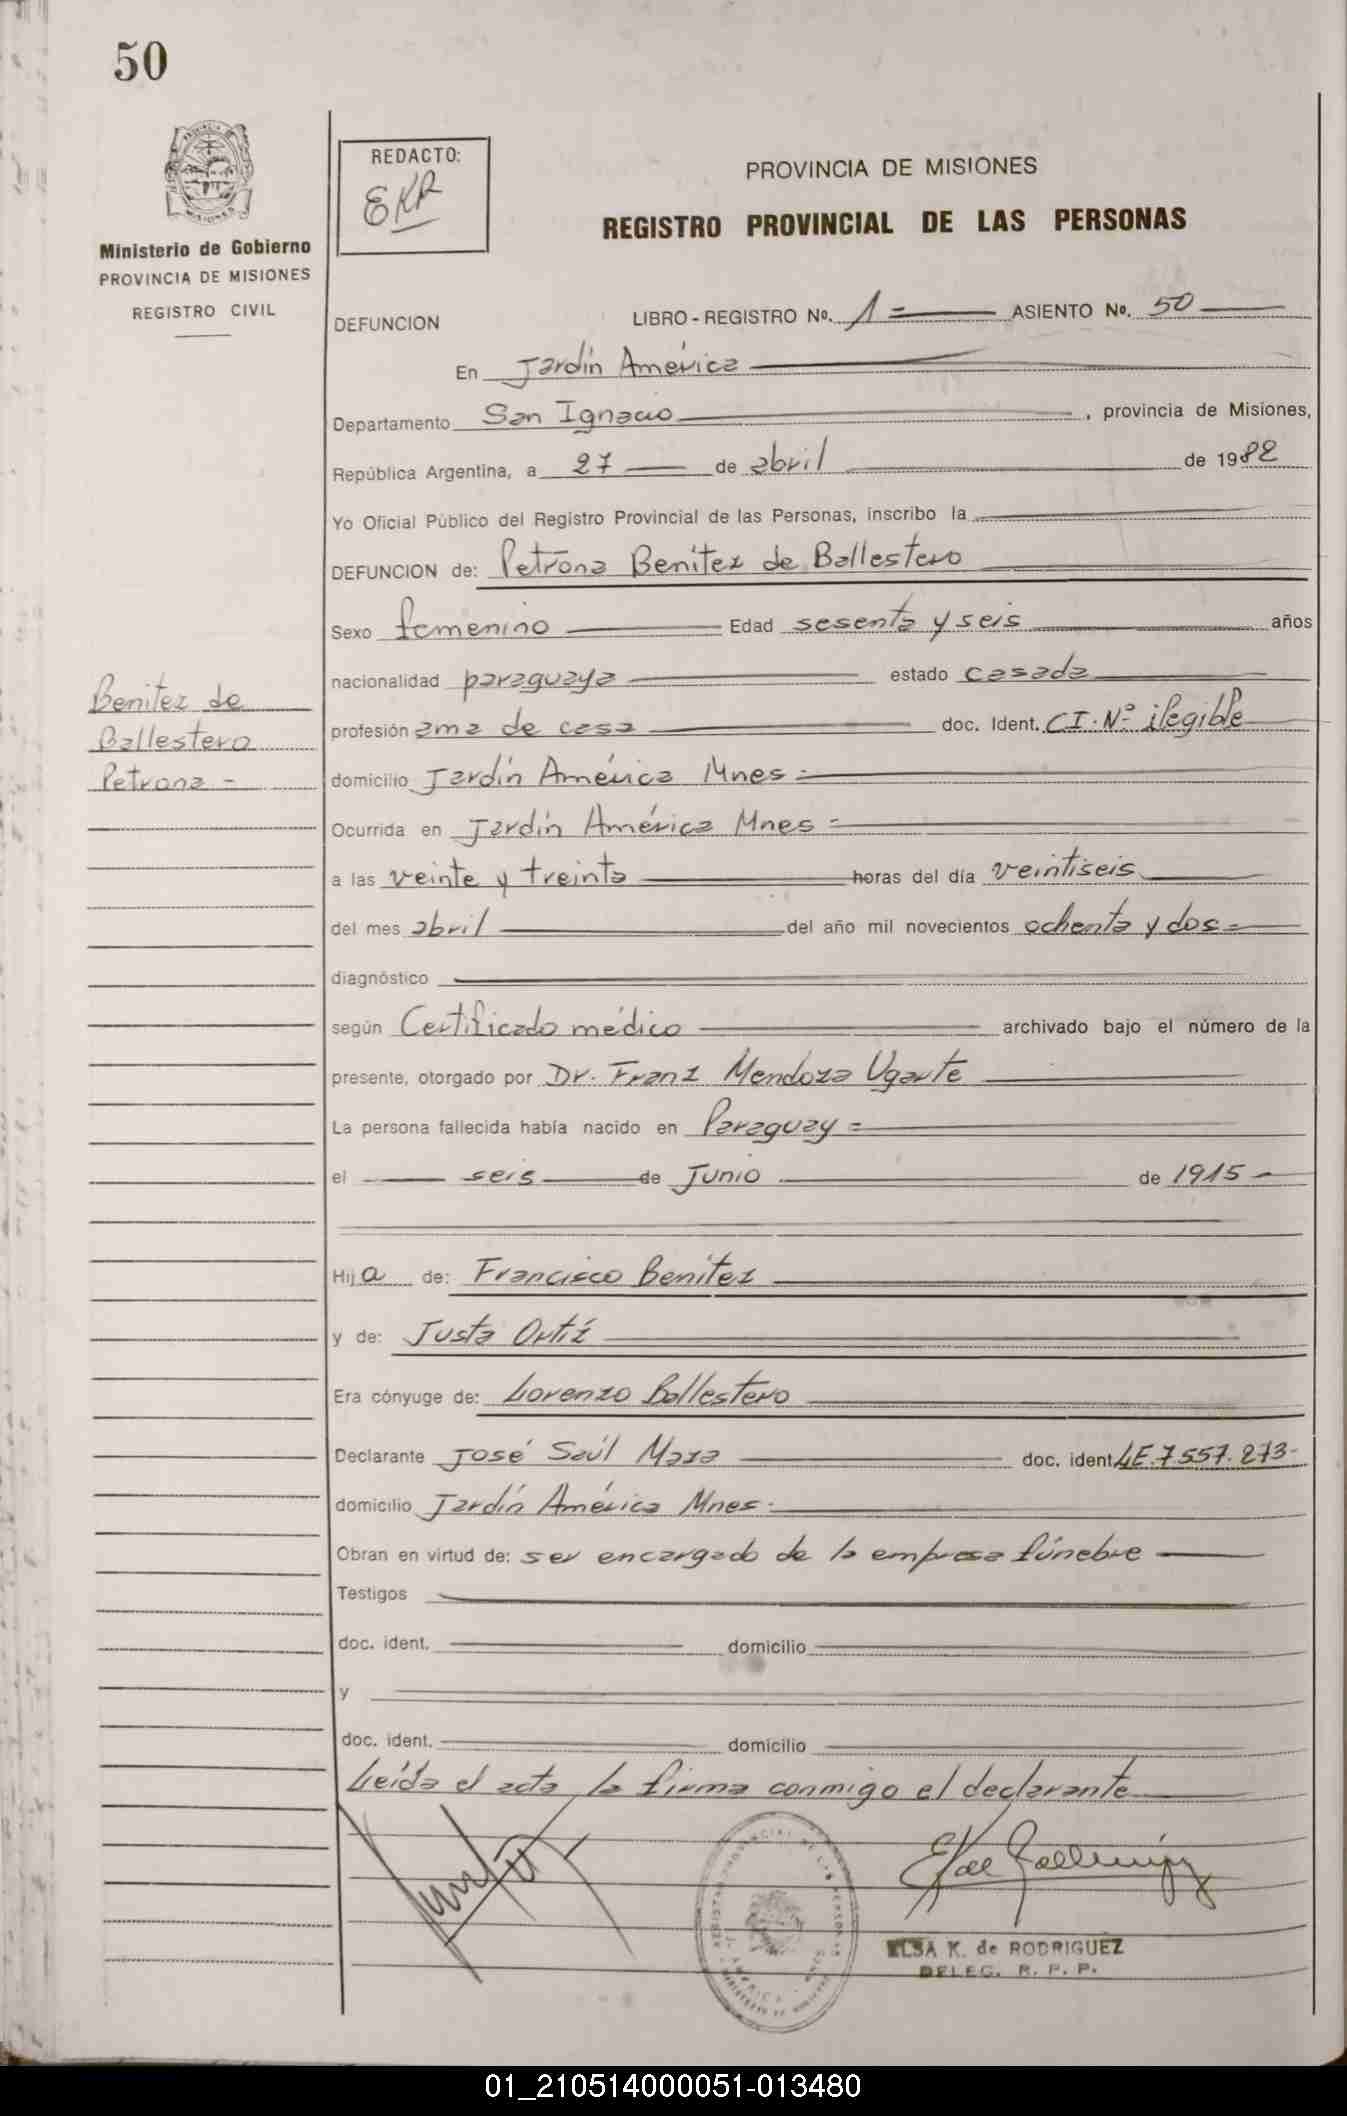 50
Ministerio de Gobierno
PROVINCIA DE MISIONES
REGISTRO CIVIL
REDACTO:
EKR
PROVINCIA DE MISIONES
REGISTRO PROVINCIAL DE LAS PERSONAS
DEFUNCION LIBRO - REGISTRO No. 1 = ASIENTO No. 50
En Jardín América
Departamento San Ignacio , provincia de Misiones,
República Argentina, a 27 de abril de 1982
Yo Oficial Público del Registro Provincial de las Personas, inscribo la
DEFUNCION de: Petrona Benítez de Ballestero
Sexo femenino Edad sesenta y seis años
nacionalidad paraguaya estado casada
profesión ama de casa doc. Ident. CI. Nº ilegible
domicilio Jardín América Mnes =
Ocurrida en Jardín América Mnes =
a las veinte y treinta horas del día veintiseis
del mes abril del año mil novecientos ochenta y dos =
diagnóstico
según Certificado médico archivado bajo el número de la
presente, otorgado por Dr. Franz Mendoza Ugarte
La persona fallecida había nacido en Paraguay =
el seis de Junio de 1915 -
Hija de: Francisco Benítez
y de: Justa Ortíz
Era cónyuge de: Lorenzo Ballestero
Declarante José Saúl Maza doc. ident. LE. 7557.273-
domicilio Jardín América Mnes.
Obran en virtud de: ser encargado de la empresa fúnebre
Testigos
doc. ident. domicilio
y
doc. ident. domicilio
Leída el acta, la firma conmigo el declarante
Benitez de
Ballestero
Petrona -
ELSA K. de RODRIGUEZ
DELEG. R. P. P.
01_210514000051-013480